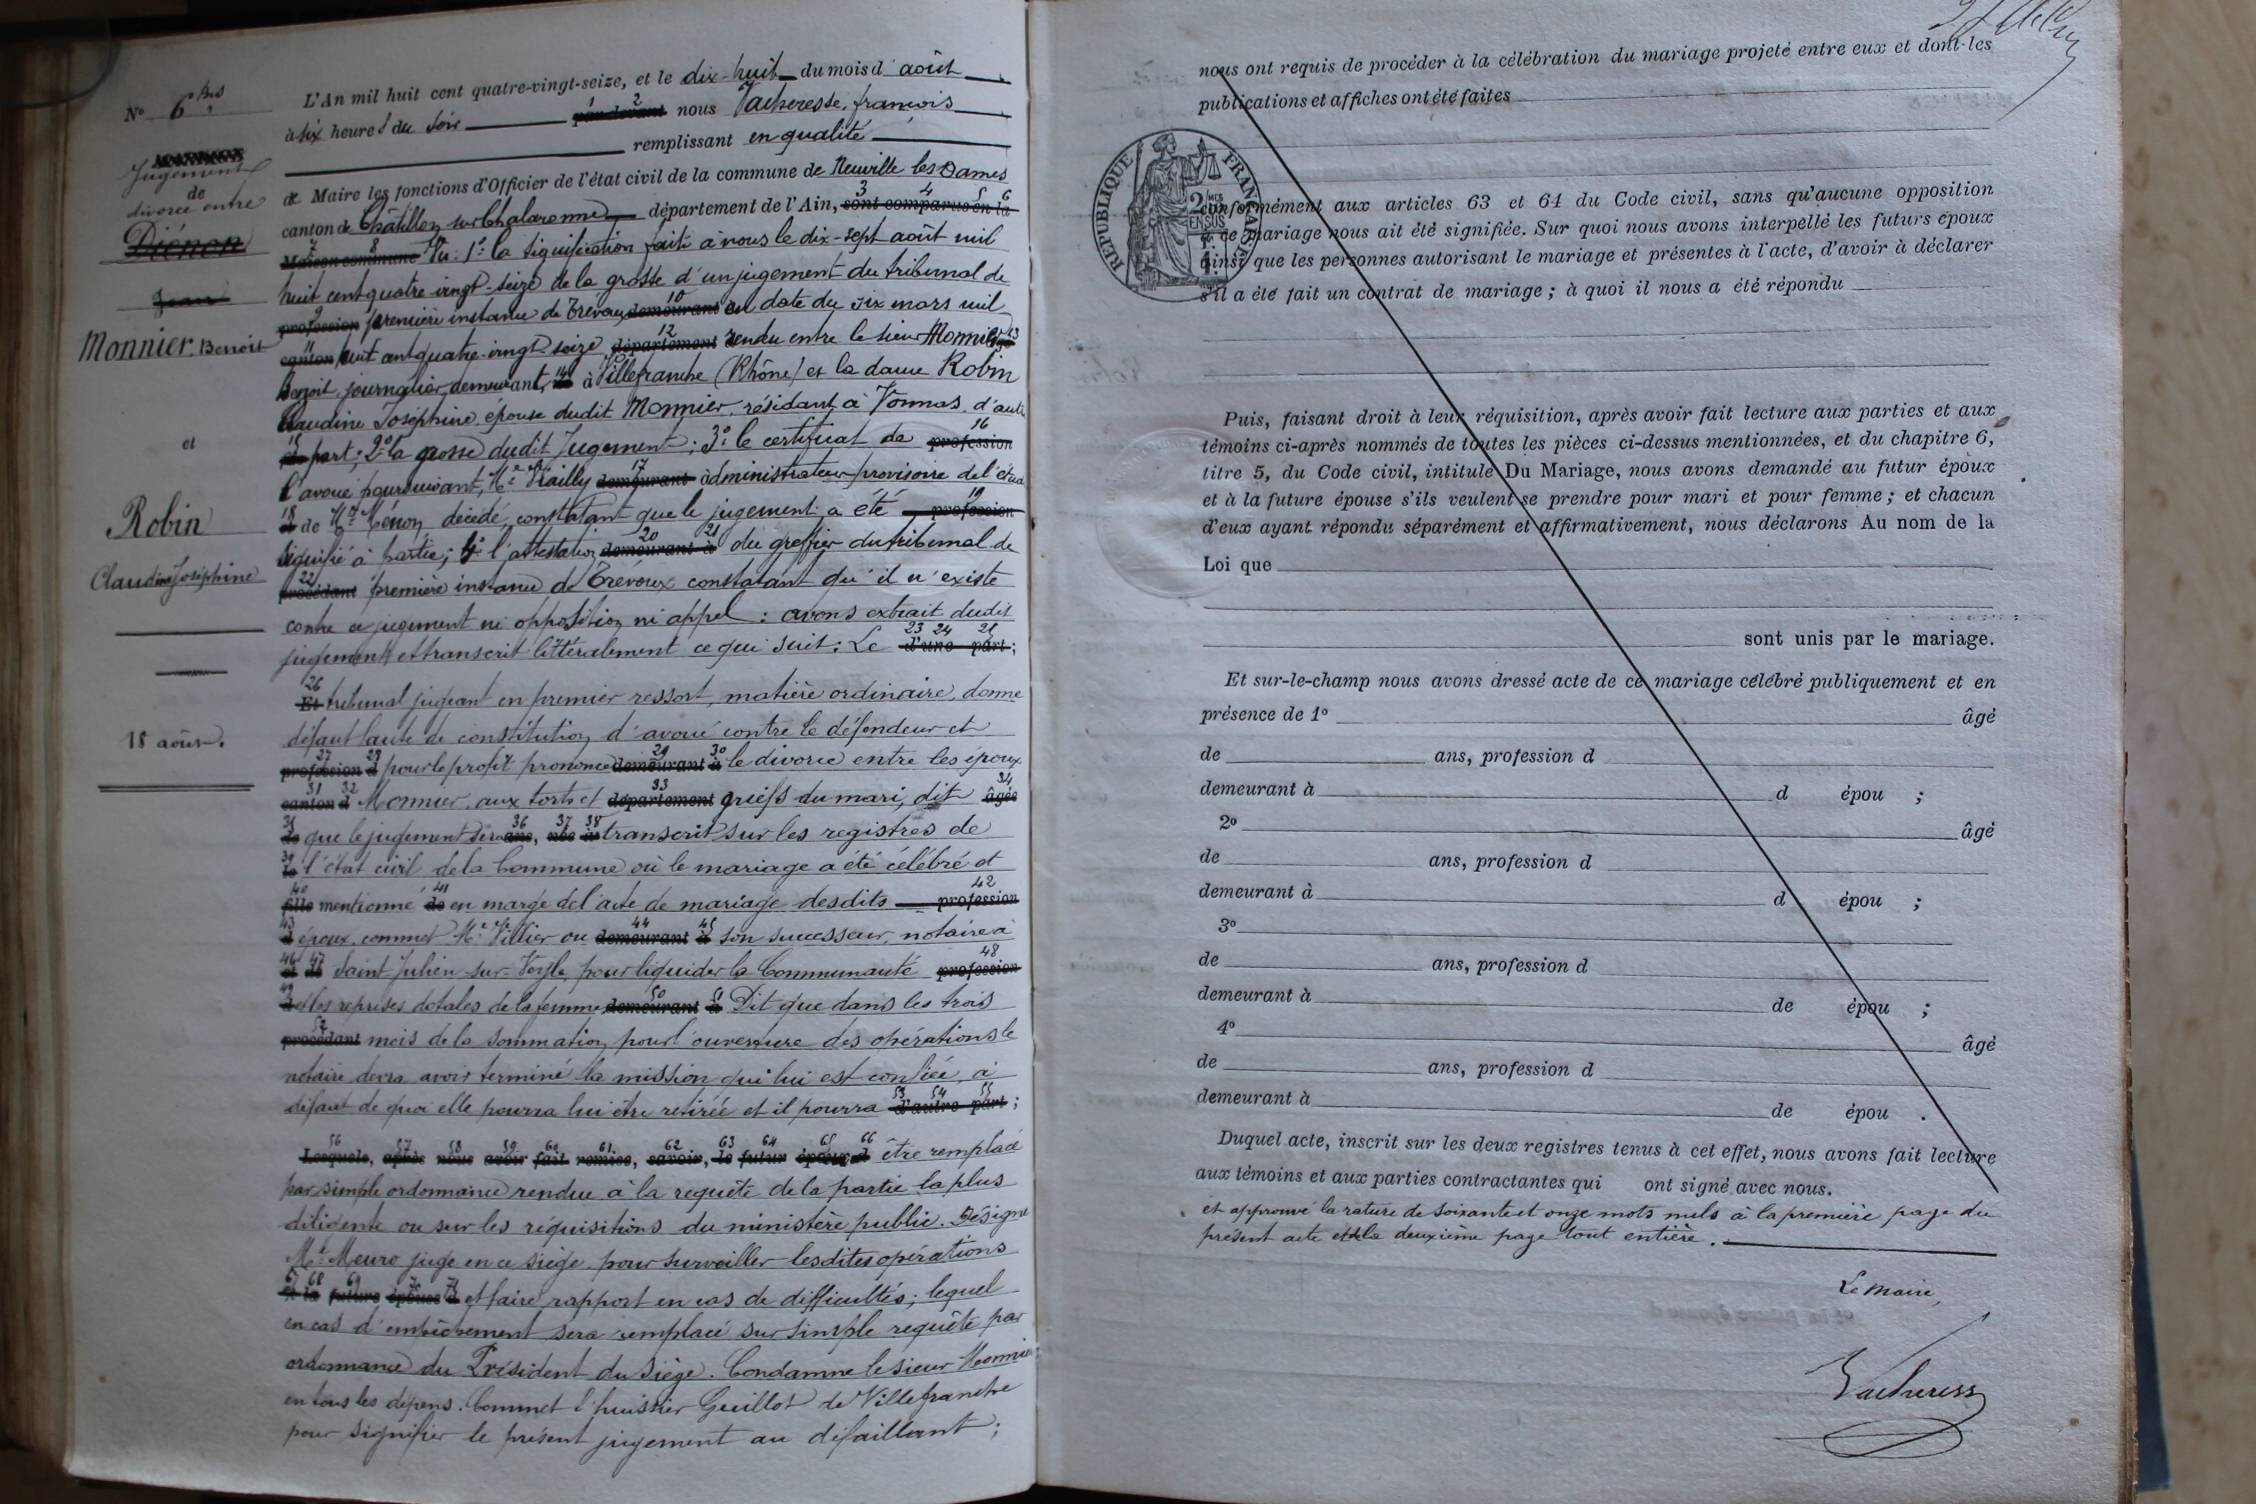 N° 6 bis
MARIAGE
Jugement
de
divorce entre
Diénon
Jean
Monnier, Benoit
et
Robin
Claudine Joséphine
18 août.
L'An mil huit cent quatre-vingt-seize, et le dix-huit du mois d'août
à six heures du soir 1 2 par devant nous Vacheresse, françois
remplissant en qualité
de Maire les fonctions d'Officier de l'état civil de la commune de Neuville les Dames
canton de Châtillon sur Chalaronne département de l'Ain, 3 4 5 6 sont comparus en la
7 8 Maison commune Vu: 1° la signification faite à nous le dix-sept août mil
huit cent quatre-vingt-seize de la grosse d'un jugement du tribunal de
9 profession première instance de Trévoux 10 demeurant en date du six mars mil
11 canton huit cent quatre-vingt-seize 12 département rendu entre le sieur Monnier 13
Benoit, journalier, demeurant 14 à Villefranche (Rhône) et la dame Robin
Claudine Joséphine épouse dudit Monnier, résidant à Vonnas, d'autre
15 part; 2° la grosse dudit Jugement; 3° le certificat de 16 profession
l'avoué poursuivant, Me 17 demeurant administrateur provisoire de l'étude
18 de Me Ménon décédé, constatant que le jugement a été 19 profession
signifié à partie; 4° l'attestation 20 21 demeurant à du greffier du tribunal de
22 procédant première instance de Trévoux constatant qu'il n'existe
contre ce jugement ni opposition ni appel: avons extrait dudit
jugement et transcrit littéralement ce qui suit: Le 23 24 25 d'une part;
26 Et tribunal jugeant en premier ressort, matière ordinaire, donne
défaut faute de constitution d'avoué contre le défendeur et
27 28 profession d pour le profit prononce 29 30 demeurant à le divorce entre les époux
31 32 canton d Monnier aux torts et 33 département griefs du mari, dit 34 âgée
35 de que le jugement sera 36 37 38 ans, née à transcrit sur les registres de
39 le l'état civil de la Commune où le mariage a été célébré et
40 fille mentionné 41 de en marge de l'acte de mariage desdits 42 profession
43 d époux, commet Me Villier ou 44 45 demeurant à son successeur, notaire à
46 47 et de Saint Julien-sur-Veyle, pour liquider la Communauté 48 profession
49 et les reprises dotales de la femme 50 51 demeurant à Dit que dans les trois
52 procédant mois de la sommation pour l'ouverture des opérations le
notaire devra avoir terminé la mission qui lui est confiée, à
défaut de quoi elle pourra lui être retirée et il pourra 53 54 55 d'autre part;
56 57 58 59 60 61 62 63 64 65 66 Lesquels, après nous avoir fait remise, savoir, le futur époux d être remplacé
par simple ordonnance rendue à la requête de la partie la plus
diligente ou sur les réquisitions du ministère public. Désigne
Mr Meure juge en ce siège pour surveiller lesdites opérations
67 68 69 70 71 Et la future épouse d et faire rapport en cas de difficultés; lequel
en cas d'empêchement sera remplacé sur simple requête par
ordonnance du Président du siège. Condamne le sieur Monnier
en tous les dépens. Commet l'huissier Guillot de Villefranche
pour signifier le présent jugement au défaillant;
nous ont requis de procéder à la célébration du mariage projeté entre eux et dont les
publications et affiches ont été faites
RÉPUBLIQUE FRANÇAISE
2 DMES EN SUS
conformément aux articles 63 et 64 du Code civil, sans qu'aucune opposition
à ce mariage nous ait été signifiée. Sur quoi nous avons interpellé les futurs époux
ainsi que les personnes autorisant le mariage et présentes à l'acte, d'avoir à déclarer
s'il a été fait un contrat de mariage; à quoi il nous a été répondu
Puis, faisant droit à leur réquisition, après avoir fait lecture aux parties et aux
témoins ci-après nommés de toutes les pièces ci-dessus mentionnées, et du chapitre 6,
titre 5, du Code civil, intitulé Du Mariage, nous avons demandé au futur époux
et à la future épouse s'ils veulent se prendre pour mari et pour femme; et chacun
d'eux ayant répondu séparément et affirmativement, nous déclarons Au nom de la
Loi que
sont unis par le mariage.
Et sur-le-champ nous avons dressé acte de ce mariage célébré publiquement et en
présence de 1° âgé
de ans, profession d
demeurant à d épou ;
2° âgé
de ans, profession d
demeurant à d épou ;
3°
de ans, profession d
demeurant à de épou ;
4° âgé
de ans, profession d
demeurant à de épou .
Duquel acte, inscrit sur les deux registres tenus à cet effet, nous avons fait lecture
aux témoins et aux parties contractantes qui ont signé avec nous.
et approuvé la rature de soixante et onze mots nuls à la première page du
présent acte et la deuxième page tout entière.
Le Maire,
Vacheresse